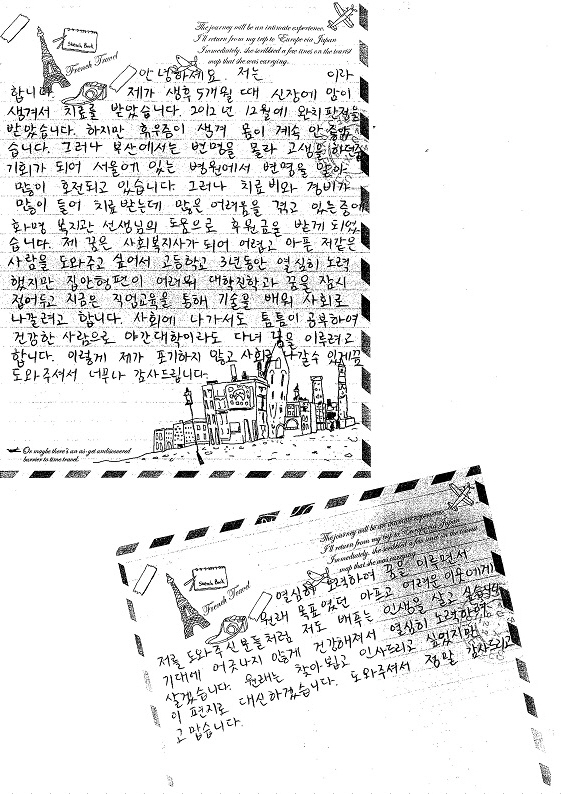 The journey will be an intimate experience.
I'll return from my trip to Europe via Japan
Immediately, she scribbled a few lines on the tourist
map that she was carrying.
Sketch Book
French Travel
안녕하세요. 저는 이라
합니다. 제가 생후 5개월 때 신장에 암이
생겨서 치료를 받았습니다. 2012년 12월에 완치판정을
받았습니다. 하지만 휴유증이 생겨 몸이 계속 안좋았
습니다. 그러나 부산에서는 병명을 몰라 고생을 하던중
기회가 되어 서울에 있는 병원에서 병명을 알아
많이 호전되고 있습니다. 그러나 치료비와 경비가
많이 들어 치료받는데 많은 어려움을 겪고 있는중에
화명 복지관 선생님의 도움으로 후원금을 받게 되었
습니다. 제 꿈은 사회복지사가 되어 어렵고 아픈 저같은
사람을 도와주고 싶어서 고등학교 3년동안 열심히 노력
했지만 집안형편이 어려워 대학진학과 꿈을 잠시
접어두고 지금은 직업교육을 통해 기술을 배워 사회로
나갈려고 합니다. 사회에 나가서도 틈틈이 공부하여
건강한 사람으로 야간대학이라도 다녀 꿈을 이루려고
합니다. 이렇게 제가 포기하지 않고 사회로 나갈수 있게끔
도와주셔서 너무나 감사드립니다.
Or maybe there's an as-yet undiscovered
barrier to time travel.
The journey will be an intimate experience.
I'll return from my trip to Europe via Japan
Immediately, she scribbled a few lines on the tourist
map that she was carrying.
Sketch Book
French Travel
열심히 노력하여 꿈을 이루면서
원래 목표였던 아프고 어려운 이웃에게
저를 도와주신분들처럼 저도 베푸는 인생을 살고 싶습니다
기대에 어긋나지 않게 건강해져서 열심히 노력하면서
살겠습니다. 원래는 찾아뵙고 인사드리고 싶었지만
이 편지로 대신하겠습니다. 도와주셔서 정말 감사드리고
고맙습니다.